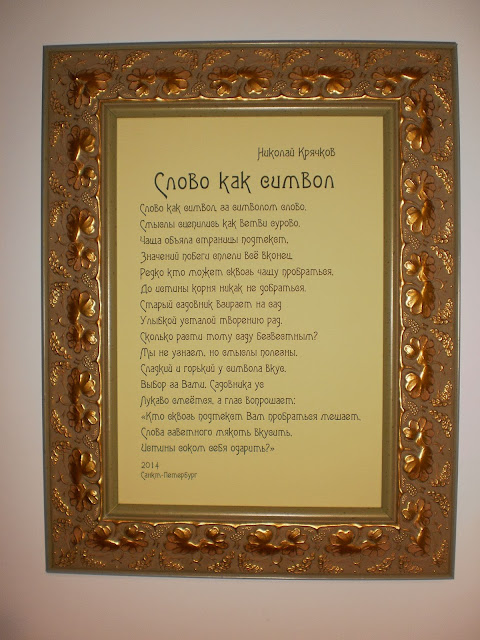 Николай Крячков
Слово как символ
Слово как символ, за символом слово,
Смыслы сцепились как ветви сурово,
Чаща объяла страницы подтекст,
Значений побеги сплели всё вконец,
Редко кто может сквозь чащу пробраться,
До истины корня никак не добраться.
Старый садовник взирает на сад
Улыбкой усталой творению рад.
Сколько расти тому саду безвестным?
Мы не узнаем, но смыслы полезны.
Сладкий и горький у символа вкус.
Выбор за Вами. Садовника ус
Лукаво смеётся, а глаз вопрошает:
«Кто сквозь подтекст Вам пробраться мешает,
Слова заветного мякоть вкусить,
Истины соком себя одарить?»
2014
Санкт-Петербург